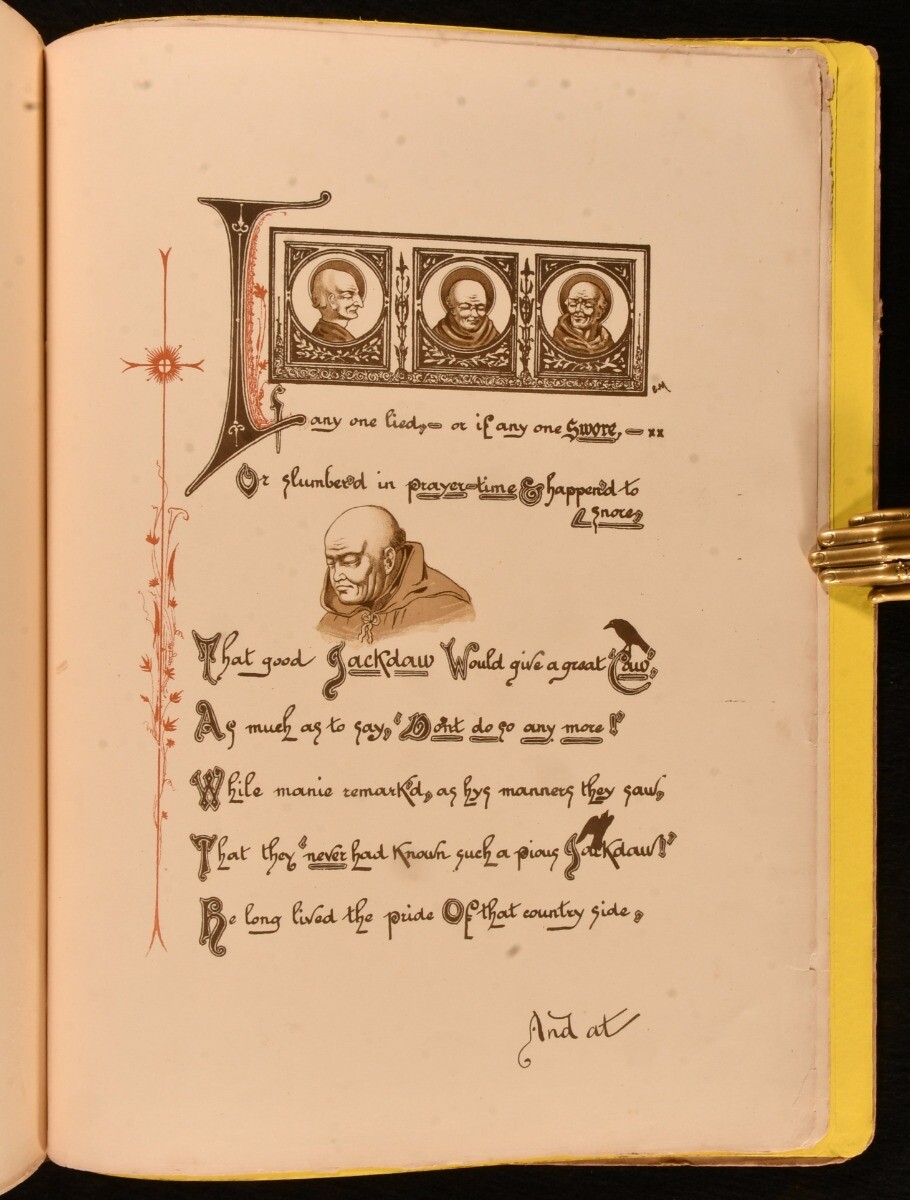 If any one lied, — or if any one Swore, — xx
Or slumber'd in prayer-time & happen'd to
snore,
That good Jackdaw Would give a great "Caw",
As much as to say, "Don't do so any more!"
While manie remark'd, as hys manners they saw,
That they "never had known such a pious Jackdaw!"
He long lived the pride Of that country side,
And at